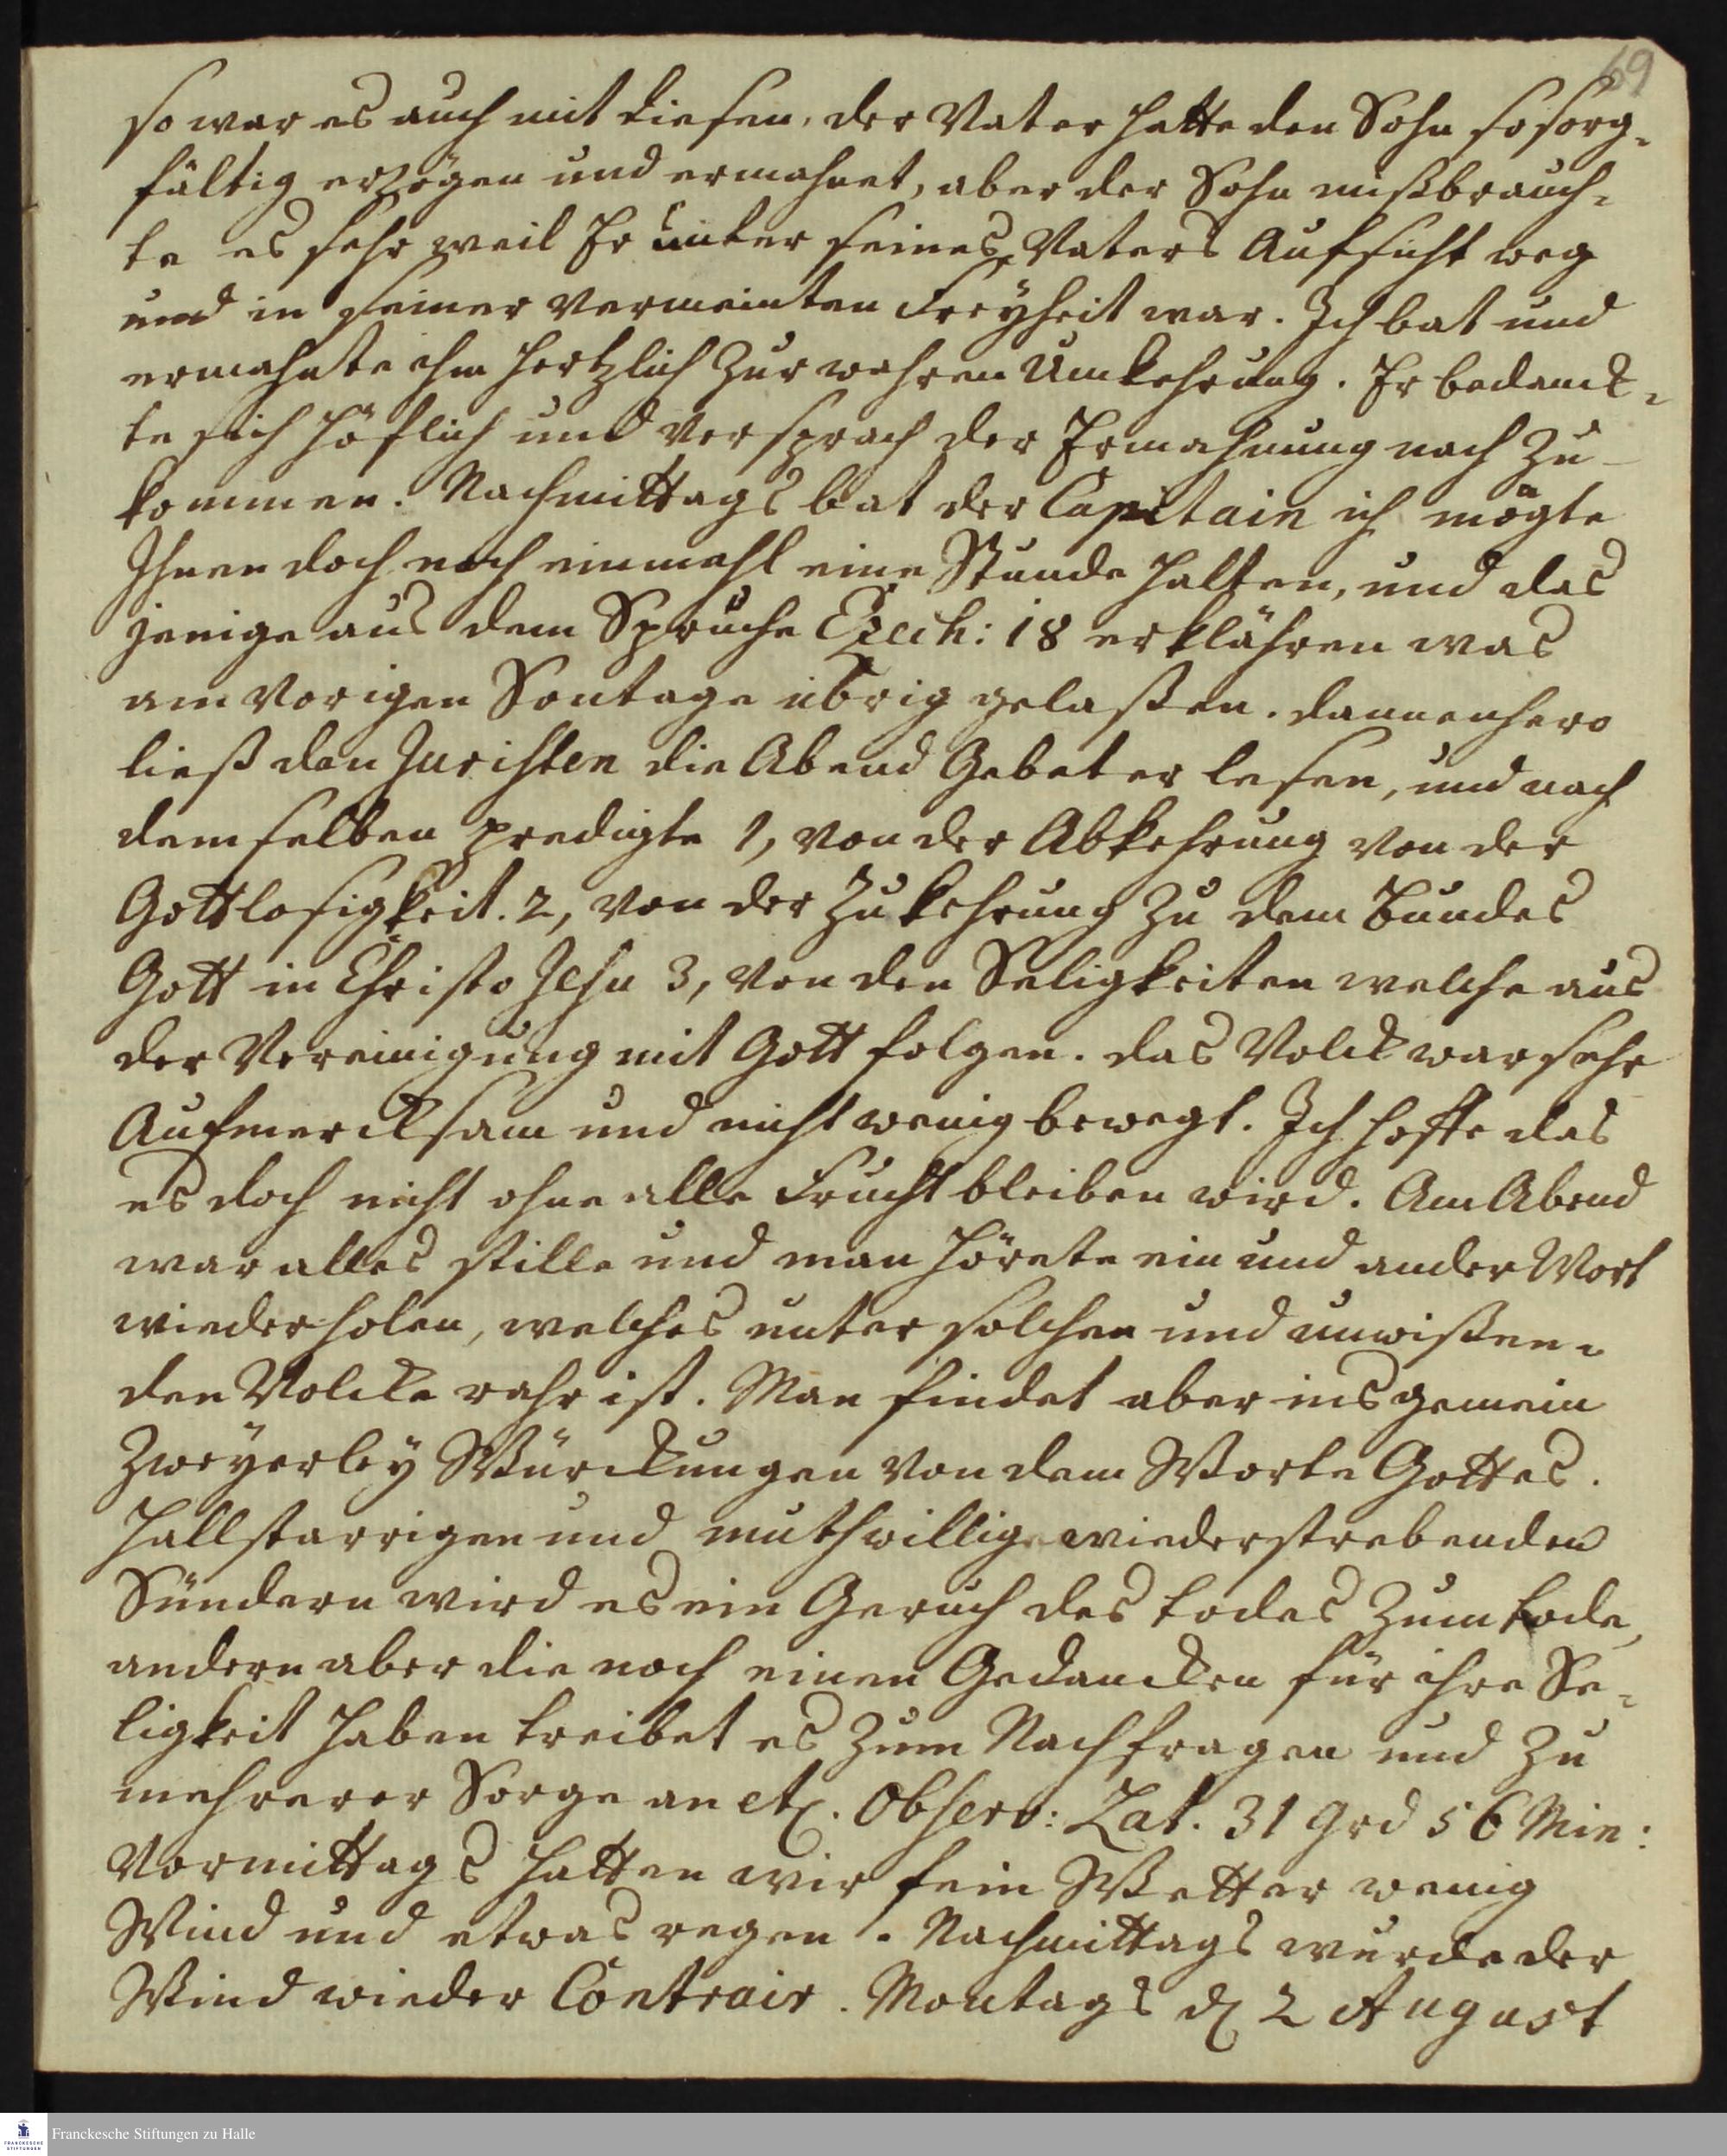 69
so war es auch mit diesen, der Vater hatte den Sohn so sorg-
fältig erzogen und ermahnet, aber der Sohn mißbrauch-
te es sehr weil Er unter seines Vaters Aufsicht weg
und in seiner vermeinten Freyheit war. Ich bat und
ermahnte ihn hertzlich zur wahren Umkehrung. Er bedanck-
te sich höflich und versprach der Ermahnung nach zu
kommen. Nachmittags bat der Capitain ich mögte
Ihnen doch noch einmahl eine Stunde halten, und das
jenige aus dem Spruche Ezech: 18 erklähren was
am vorigen Sontage übrig gelaßen. dannenhero
ließ den Juristen die Abend Gebeter lesen, und nach
demselben predigte 1, von der Abkehrung von der
Gottlosigkeit. 2, von der Zukehrung zu dem Bundes
Gott in Christo Jesu 3, von den Seligkeiten welche aus
der Vereinigung mit Gott folgen. das Volck war sehr
Aufmercksam und nicht wenig bewegt. Ich hoffe das
es doch nicht ohne alle Frucht bleiben wird. Am Abend
war alles stille und man hörete ein und ander Wort
wiederholen, welches unter solchen und unwißen-
den Volcke rahr ist. Man findet aber ins gemein
Zweyerley Würckungen von dem Worte Gottes.
Hallstarrigen und muthwillig wiederstrebenden
Sündern wird es ein Geruch des todes zum tode,
andern aber die noch einen Gedancken für ihre Se-
ligkeit haben treibet es zum Nachfragen und zu
mehrerer Sorge an etc. Observ: Lat. 31 Grd 56 Min:
Vormittags hatten wir fein Wetter wenig
Wind und etwas regen. Nachmittags wurde der
Wind wieder Contrair. Montags d 2 August
Franckesche Stiftungen zu Halle